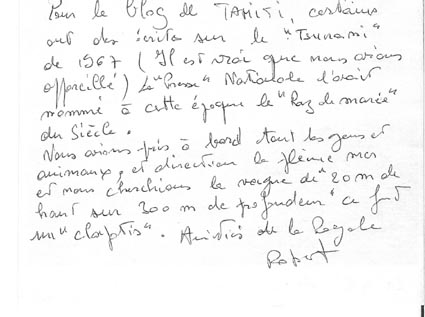 Pour le blog de TAHITI, certains
ont des écrits sur le "Tsunami"
de 1967 (Il est vrai que nous avions
appareillé) La "Presse" Nationale l'avait
nommé à cette époque le "Raz de marée"
du Siècle.
Nous avions pris à bord tout les gens et
animaux, et direction la pleine mer
et nous cherchions la vague de "20 m de
haut sur 300 m de profondeur" ce fut
un "clapotis". Amitiés de la Royale
Robert